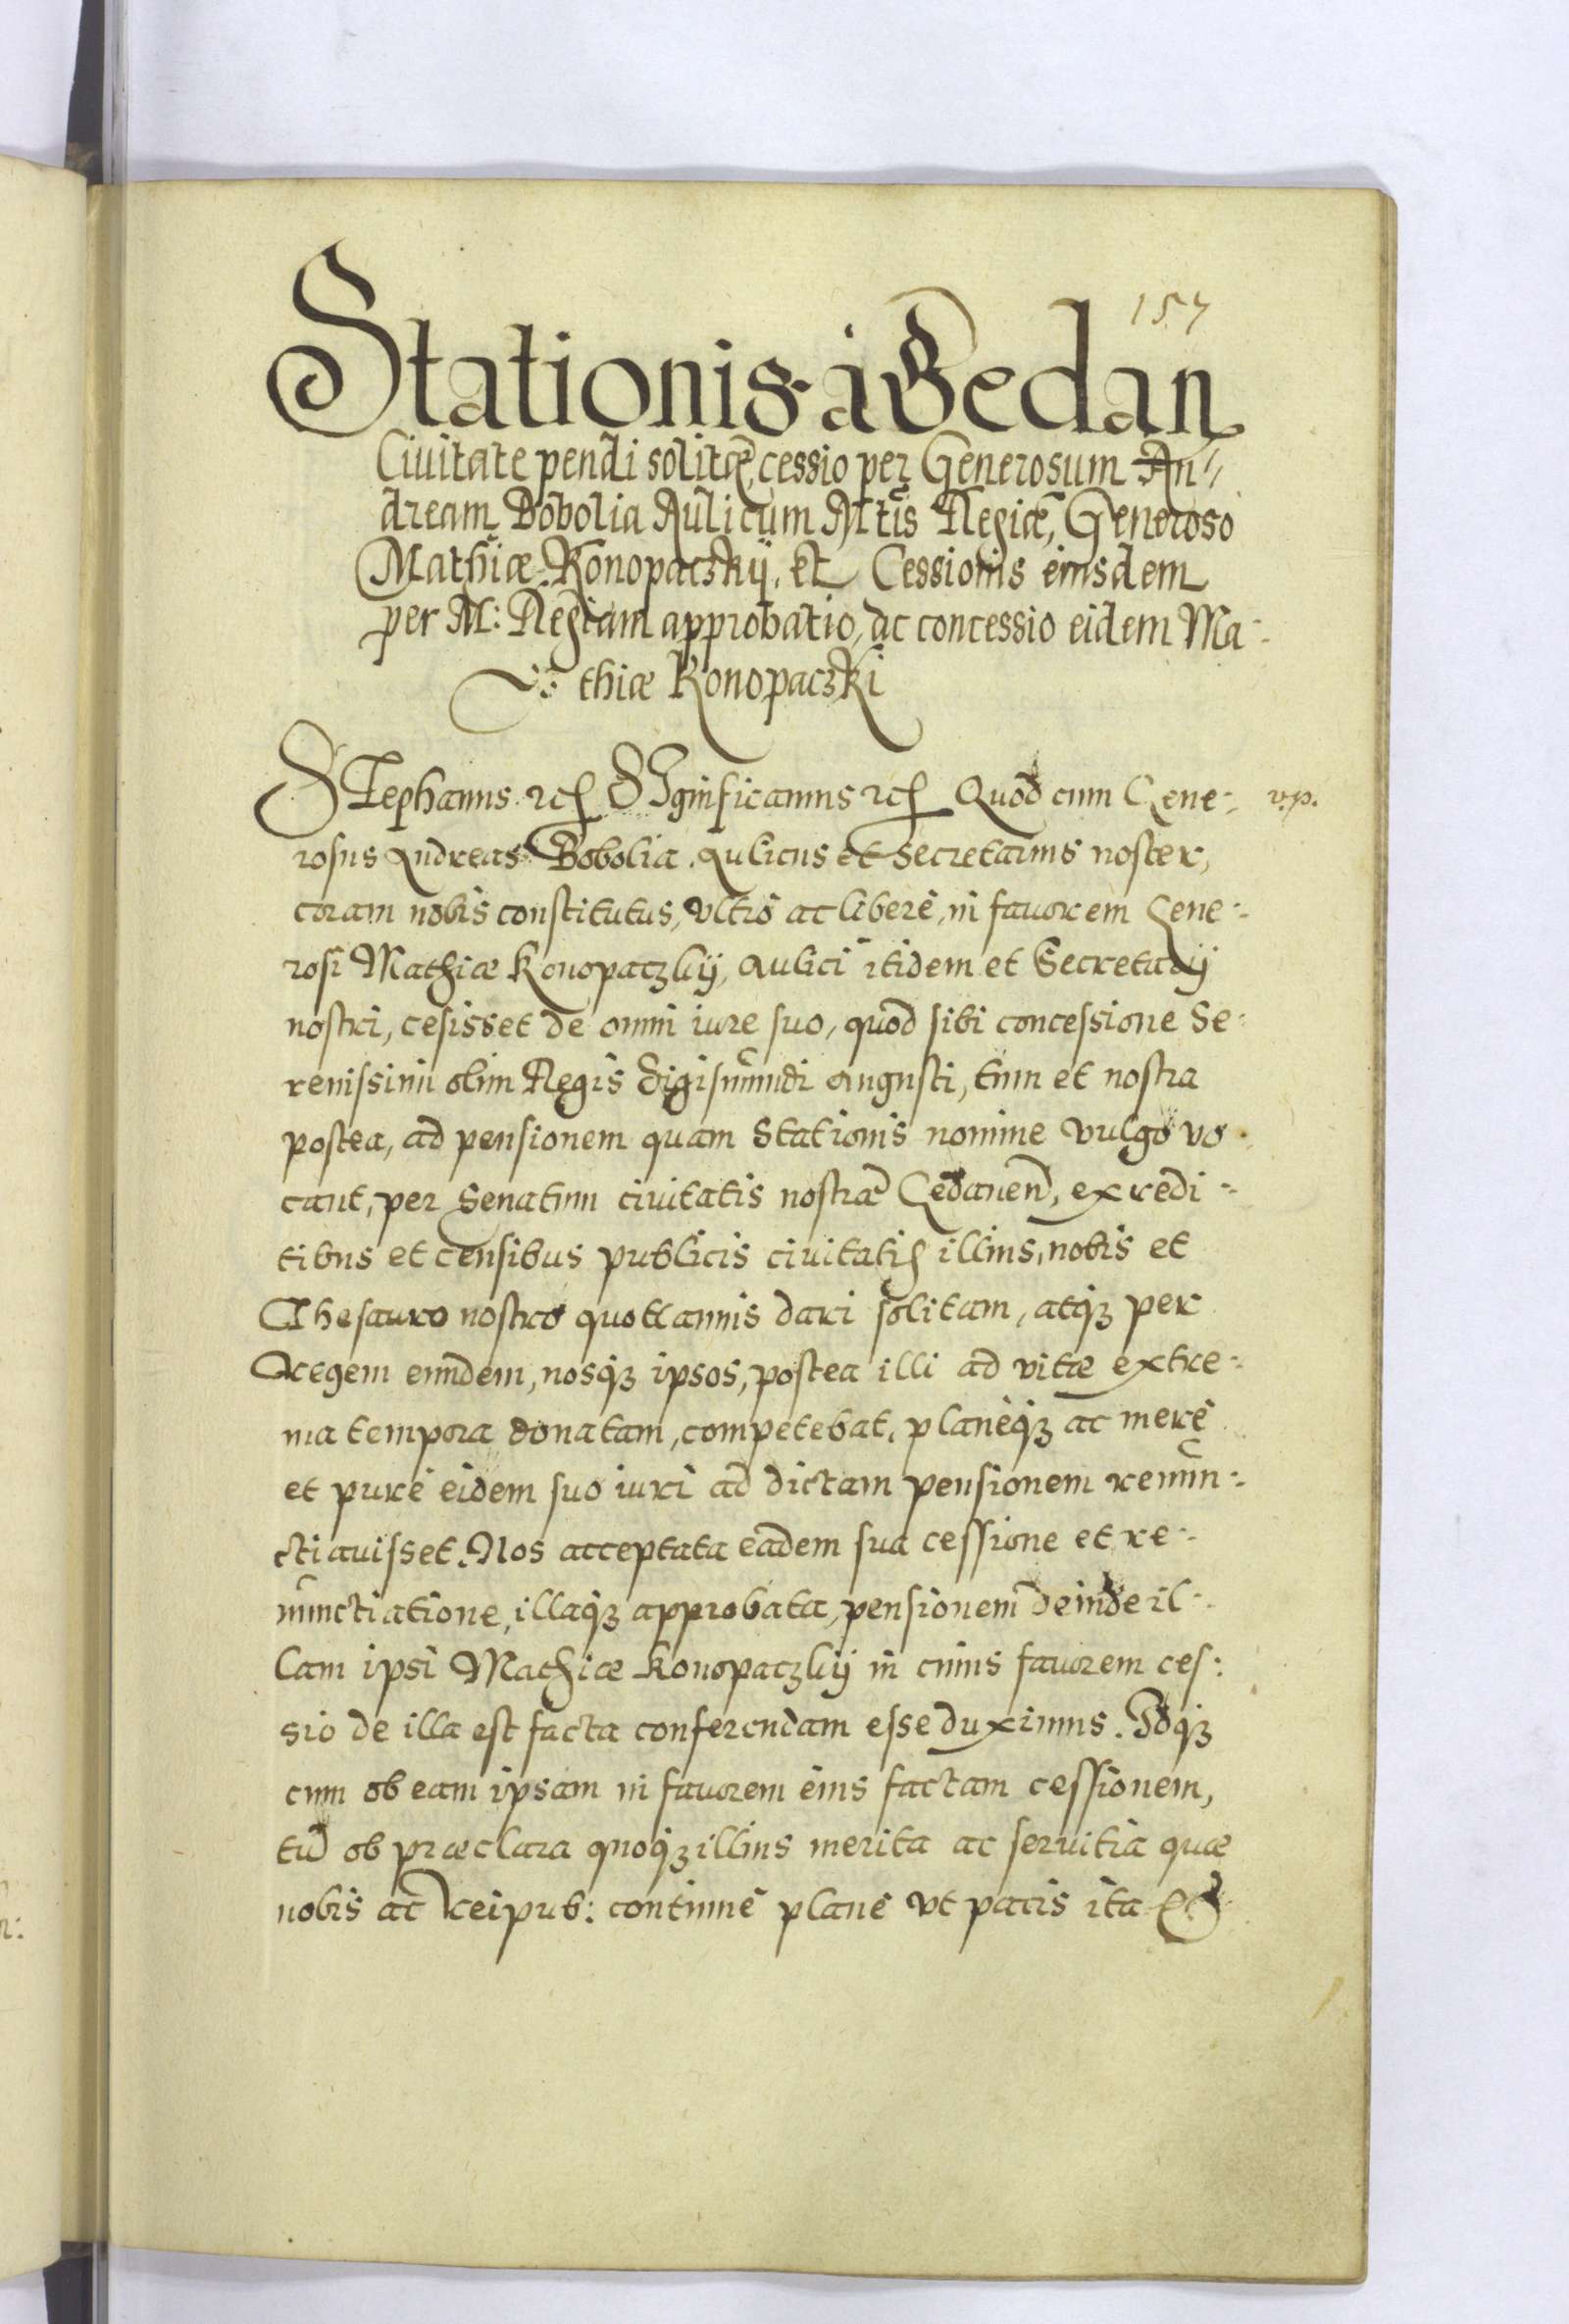 157
Stationis à Gedan
Ciuitate pendi solitæ, cessio per Generosum An//
dream Bobolia Aulicum Mtis Regiæ, Generoso
Mathiæ Konopaczkij, et Cessionis eiusdem
per M: Regiam approbatio, ac concessio eidem Ma-:
thiæ Konopaczki
STephanus etc Significamus etc Quod cum Gene-: v.p.
rosus Andreas Bobolia Aulicus et Secretarius noster,
coram nobis constitutus, vltrò ac liberè, in fauorem Gene-:
rosi Mathiæ Konopaczkij, Aulici itidem et Secretarij
nostri, cesisset de omni iure suo, quod sibi concessione Se-
renissimi olim Regis Sigismundi Augusti, tum et nostra
postea, ad pensionem quam Stationis nomine vulgò vo-
cant, per Senatum ciuitatis nostræ Gedanen, ex redi-:
tibus et censibus publicis ciuitatis illius, nobis et
Thesauro nostro quottannis dari solitam, atqз per
Regem eundem, nosqз ipsos, postea illi ad vitæ extre-:
ma tempora donatam, competebat, planèqз ac merè
et purè eidem suo iuri ad dictam pensionem renun-:
ctiauisset. Nos acceptata eadem sua cessione et re-:
nunctiatione, illaqз approbata, pensionem deinde il-:
lam ipsi Mathiæ Konopaczkij in cuius fauorem ces:
sio de illa est facta conferendam esse duximus. Idqз
cum ob eam ipsam in fauorem eius factam cessionem,
tũ ob præclara quoqз illius merita ac seruitia quæ
nobis ac Reipub: continuè planè vt pacis ita et